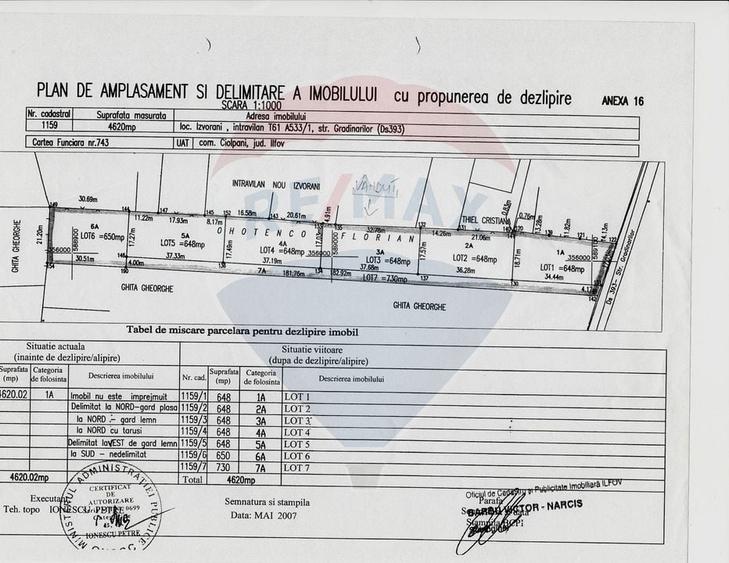 PLAN DE AMPLASAMENT SI DELIMITARE A IMOBILULUI cu propunerea de dezlipire
ANEXA 16
SCARA 1:1000
Nr. cadastral Suprafata masurata Adresa imobilului
1159 4620mp loc. Izvorani , intravilan T61 A533/1, str. Gradinarilor (Ds393)
Cartea Funciara nr.743 UAT com. Ciolpani, jud. Ilfov
INTRAVILAN NOU IZVORANI
VANDUT
THIEL CRISTIANA
RE/MAX
30.69m
11.22m 17.93m 8.17m 16.58m 20.61m 4.91m 32.78m 14.26m 21.06m 0.76m 13.28m 11.82m
OHOTENCO FLORIAN
GHITA GHEORGHE
21.20m
6A
LOT6 =650mp
17.27m
5A
LOT5 =648mp
17.49m
4A
LOT4 =648mp
3A
LOT3 =648mp
2A
LOT2 =648mp
18.71m
1A
LOT1 =648mp
356000
589100
Ds 393- Str. Gradinarilor
30.51m 4.00m 37.33m 37.19m 37.68m 36.28m 34.44m
7A 181.76m 82.92m LOT7 =730mp
GHITA GHEORGHE
GHITA GHEORGHE
Tabel de miscare parcelara pentru dezlipire imobil
Situatie actuala
(inainte de dezlipire/alipire)
Situatie viitoare
(dupa de dezlipire/alipire)
Suprafata (mp) Categoria de folosinta Descrierea imobilului Nr. cad. Suprafata (mp) Categoria de folosinta Descrierea imobilului
4620.02 1A Imobil nu este imprejmuit 1159/1 648 1A LOT 1
Delimitat la NORD-gard plasa 1159/2 648 2A LOT 2
la NORD - gard lemn 1159/3 648 3A LOT 3
la NORD cu tarusi 1159/4 648 4A LOT 4
Delimitat la VEST de gard lemn 1159/5 648 5A LOT 5
la SUD - nedelimitat 1159/6 650 6A LOT 6
1159/7 730 7A LOT 7
4620.02mp Total 4620mp
Executant
Teh. topo IONESCU PETRE
MINISTERUL ADMINISTRATIEI PUBLICE
CERTIFICAT
DE
AUTORIZARE
IONESCU PETRE
Semnatura si stampila
Data: MAI 2007
Oficiul de Cadastru si Publicitate Imobiliară ILFOV
Parafa
BARBU VICTOR - NARCIS